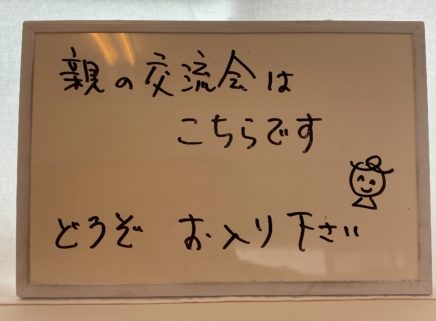 親の交流会は
こちらです
どうぞ お入り下さい